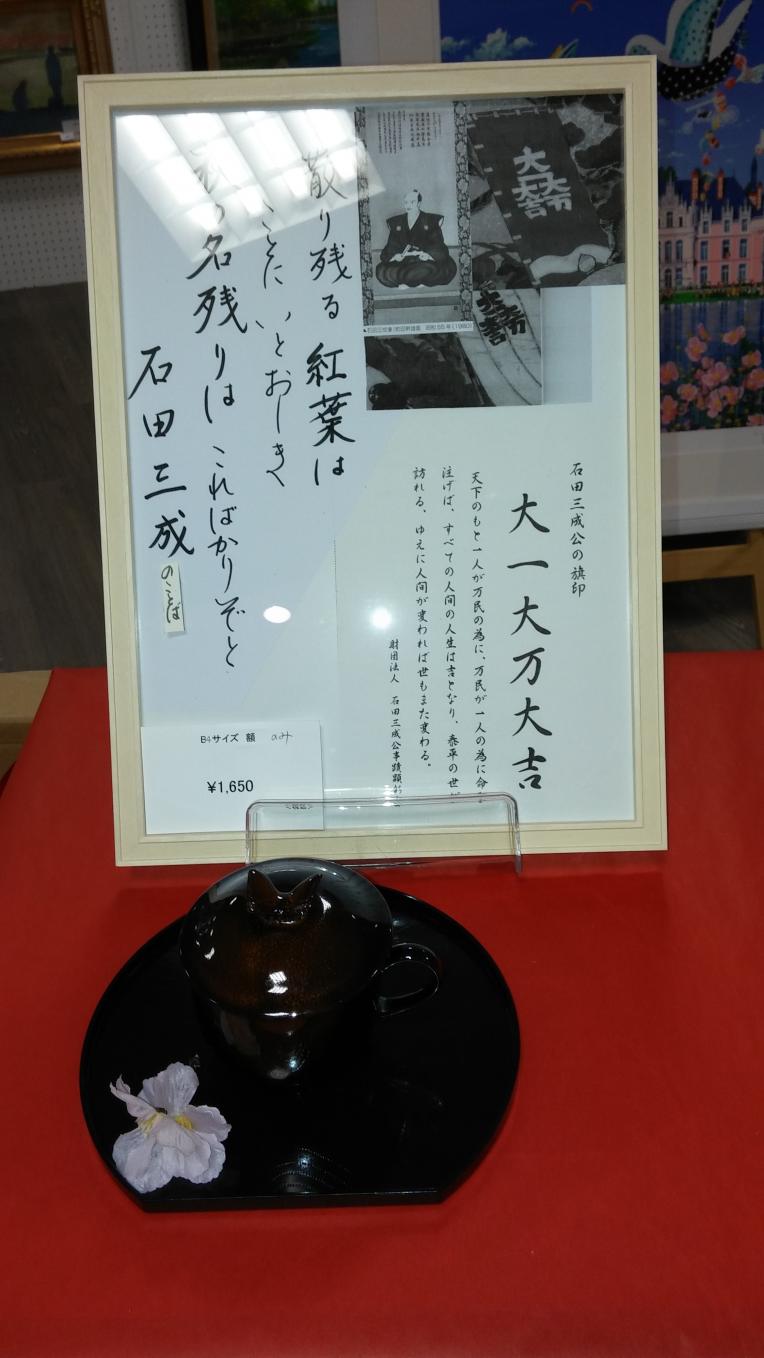 大一大万大吉
▲石田三成像(杉山幹雄画 昭和55年(1980))
石田三成公の旗印
大一大万大吉
天下のもと一人が万民の為に、万民が一人の為に命を
注げば、すべての人間の人生は吉となり、泰平の世が
訪れる。ゆえに人間が変われば世もまた変わる。
財団法人 石田三成公事蹟顕彰
散り残る 紅葉は
ことに いとおしき
秋の名残りは こればかりぞと
石田三成
のことば
B4サイズ 額 のみ
¥1,650
<税込>